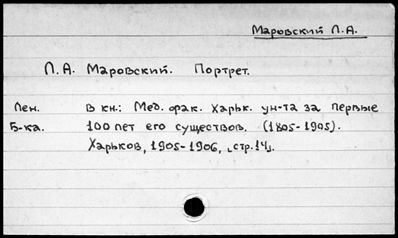 Маровский Л.А.
Л.А. Маровский. Портрет.
Лен. в кн.: Мед. фак. Харьк. ун-та за первые
Б-ка. 100 лет его существов. (1805-1905).
Харьков, 1905-1906, [стр.14].